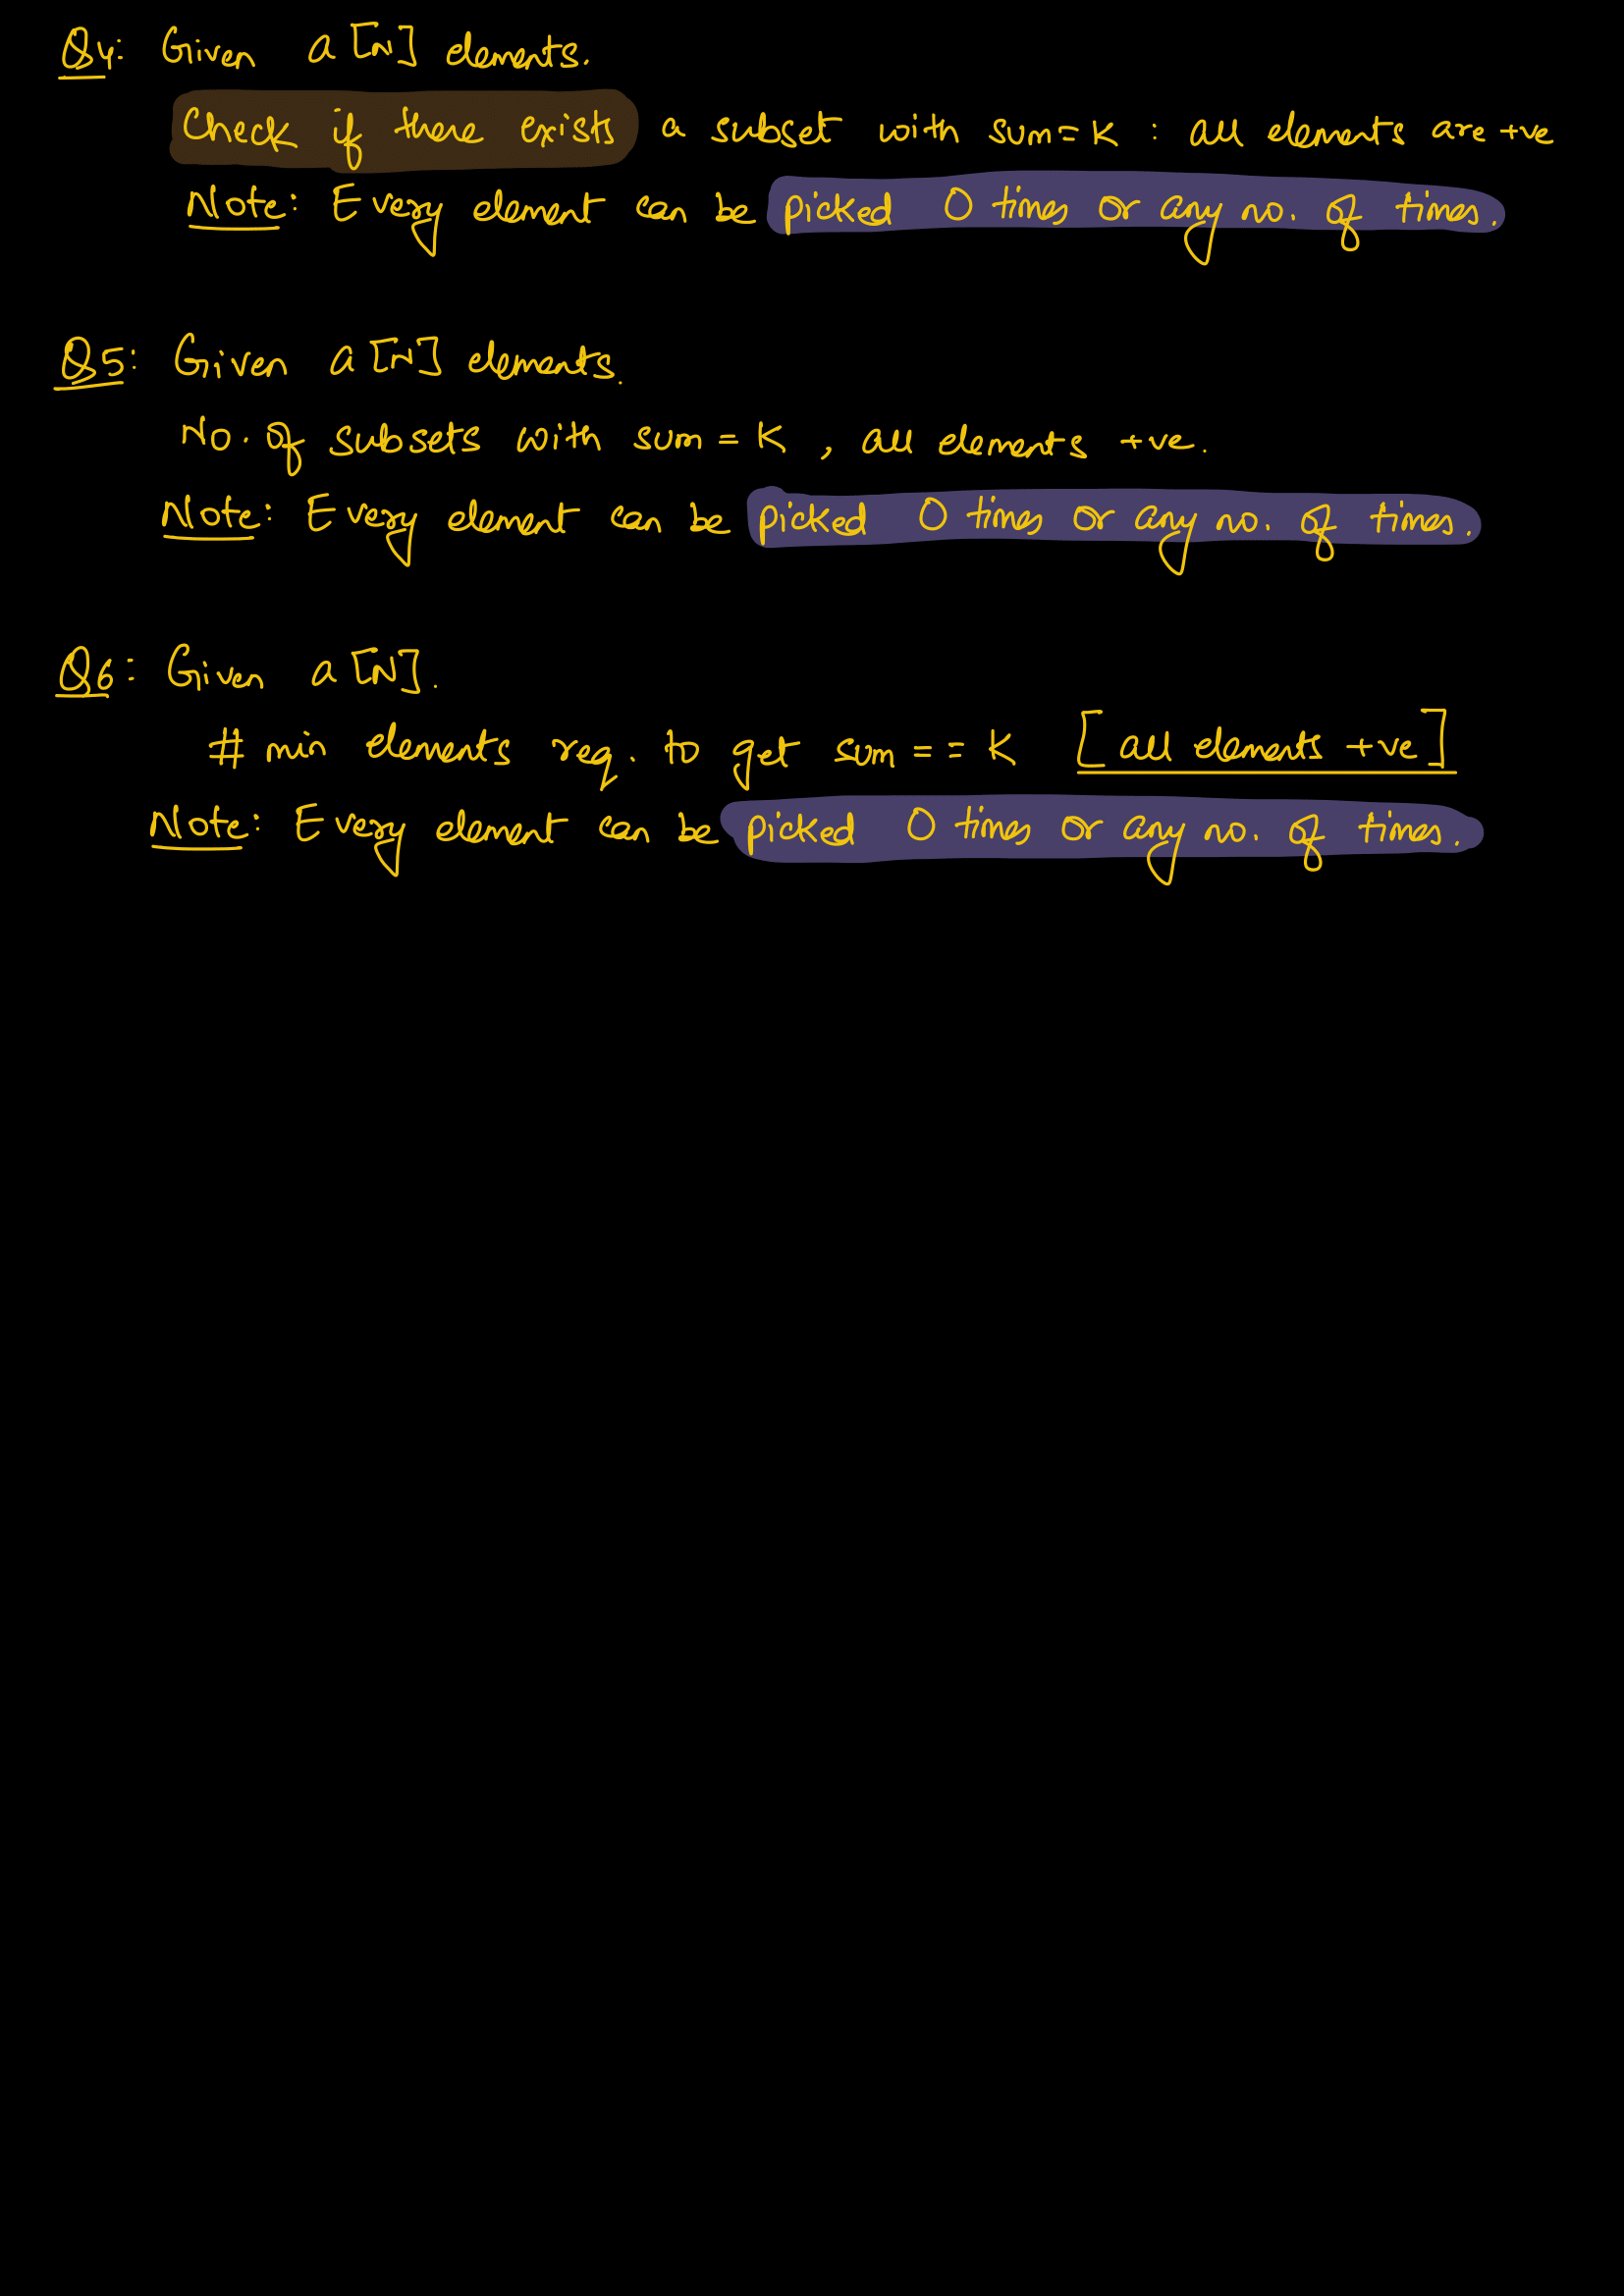 Q4: Given a[N] elements.
Check if there exists a subset with sum=K : all elements are +ve
Note: Every element can be picked 0 times or any no. of times.
Q5: Given a[N] elements.
No. of subsets with sum = K , all elements +ve.
Note: Every element can be picked 0 times or any no. of times.
Q6: Given a[N].
# min elements req. to get sum == K [all elements +ve]
Note: Every element can be picked 0 times or any no. of times.